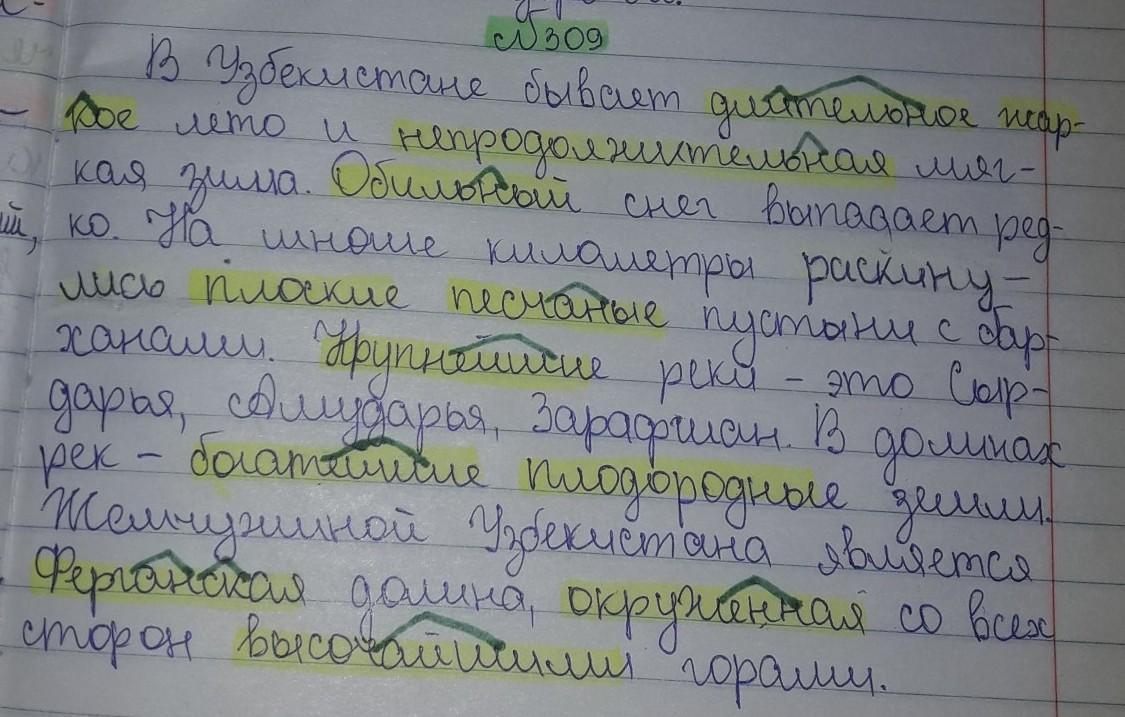 №309
В Узбекистане бывает длительное жар-
кое лето и непродолжительная мяг-
кая зима. Обильный снег выпадает ред-
ко. На многие километры раскину-
лись плоские песчаные пустыни с бар-
ханами. Крупнейшие реки - это Сыр-
дарья, Амударья, Зарафшан. В долинах
рек - богатейшие плодородные земли.
Жемчужиной Узбекистана является
Ферганская долина, окруженная со всех
сторон высочайшими горами.